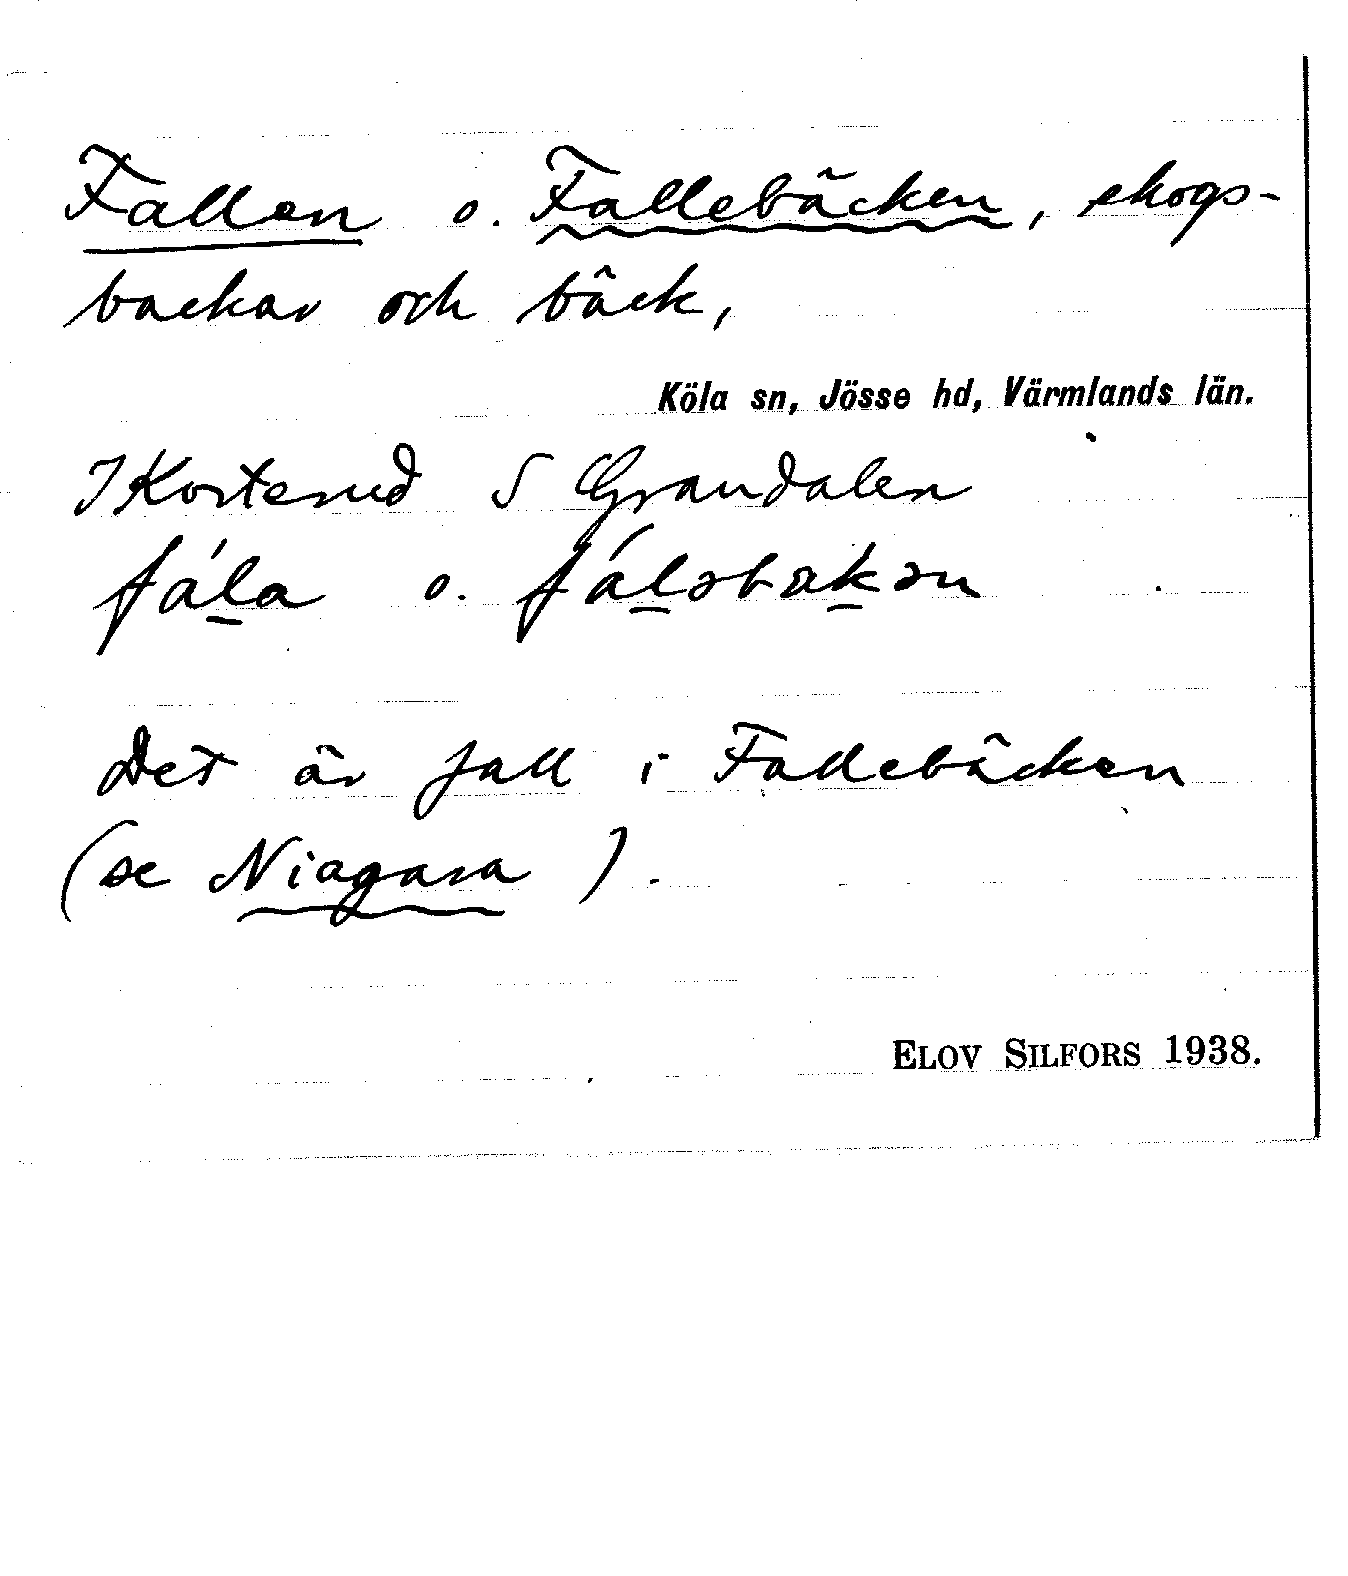 Fallen o. Fallebäcken, skogs-
backar och bäck,
Köla sn, Jösse hd, Värmlands län.
I Korterud S Grandalen
fála o. fáləbäkən
Det är fall i Fallebäcken
(se Niagara).
ELOV SILFORS 1938.